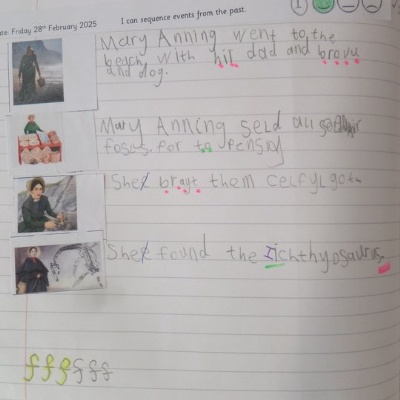 ate: Friday 28th February 2025
I can sequence events from the past.
Mary Anning went to the
beach with hir dad and brovu
and dog.
Mary Anning seld all
foses for to pensny
She brayt them
She found the Ichthyosaurus.
f f f f f f